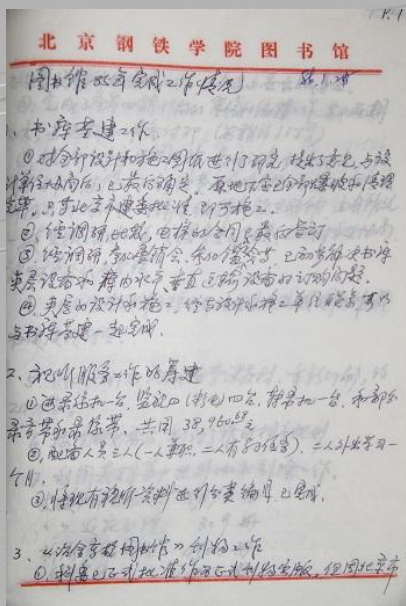 P.1
北京钢铁学院图书馆
图书馆85年完成工作情况 86.1.25
1、书库基建工作
①对全部设计和施工图纸进行了研究,提出了意见,与设
计单位 后,已最后确定。原地下室已全部爆破和清理
完毕,只等北京市建委批准,即可施工。
②经调研比较,电梯的合同已最后签订
③经调研, 展销会, ,已初步解决书库
夹层设备和库内水平、垂直运输设备的订购问题。
④夹层的设计和施工,经与设计和施工单位联系
与书库基建一起完成。
2、视听服务工作的筹建
①进录像机一台,监视四(彩色)四台,静录机一台,和部分
录音带和录像带,共用38,960.68元
②配备人员三人(一人兼职,二人有 任务),二人外出学习一
个月。
③将现有视听资料进行分类编目,已完成。
3、《冶金高校图书馆》创刊工作
①科委已正式批准作为正式刊物出版,但因北京市